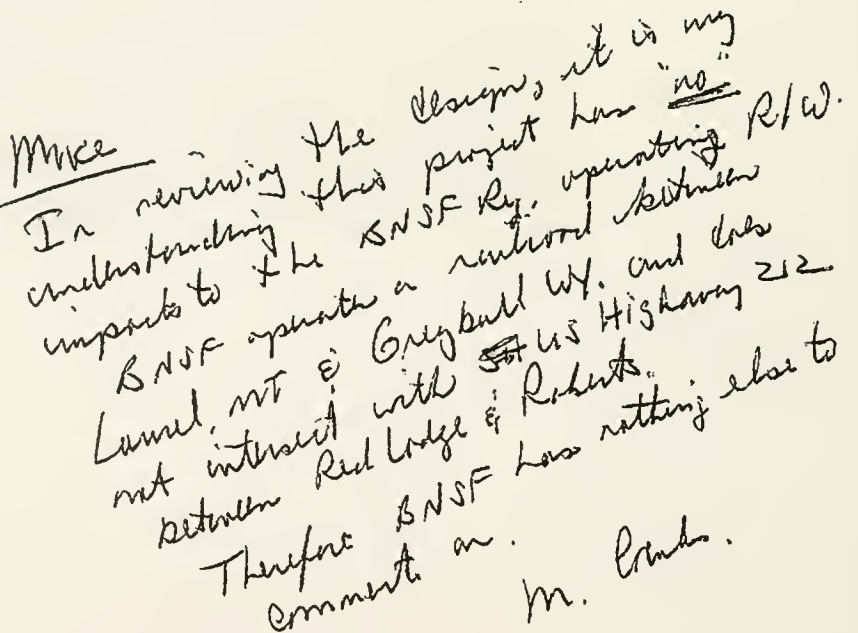 Mike
In reviewing the design, it is my
understanding this project has "no"
impacts to the BNSF Ry. operating R/W.
BNSF operates a railroad between
Laurel, MT & Greybull WY. and does
not intersect with US Highway 212
between Red Lodge & Roberts.
Therefore BNSF has nothing else to
comment on.
M.